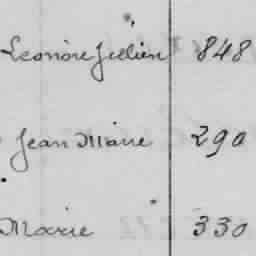 Leonore Julien 848
Jean Marie 290
Marie 330